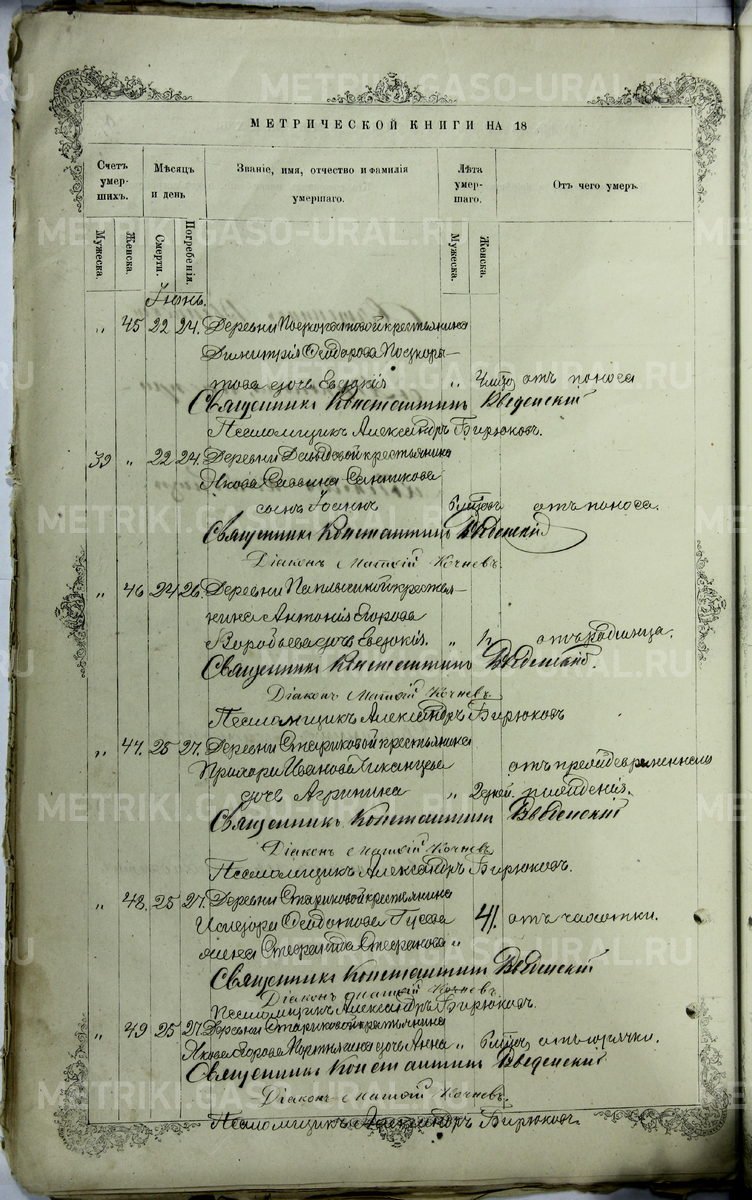 МЕТРИЧЕСКОЙ КНИГИ НА 18
Счетъ умерших. Мѣсяцъ и день Званіе, имя, отчество и фамилія умершаго. Лѣта умершаго. Отъ чего умеръ.
Мужеска. Женска. Смерти. Погребенія. Мужеска. Женска.
Іюнь.
„ 45 22 24. Деревни крестьянина
Димитрія Ѳеодорова
дочь Евдокія „ отъ поноса
Священникъ Константинъ Введенскій
Псаломщикъ Александръ Бирюковъ.
39 „ 22 24. Деревни Давыдовой крестьянина
Якова Саввина Санникова
сынъ Іоаннъ отъ поноса.
Священникъ Константинъ Введенскій
Діаконъ Матѳій Кочневъ.
„ 46 24 26. Деревни крестья-
нина Антонія Егорова
Воробьева дочь Евдокія. „ отъ родимца.
Священникъ Константинъ Введенскій.
Діаконъ Матѳій Кочневъ
Псаломщикъ Александръ Бирюковъ
„ 47. 25 27. Деревни Стариковой крестьянина
Иванова отъ преждевременнаго
дочь Агрипина „ 2 дней. рожденія.
Священникъ Константинъ Введенскій
Діаконъ Матѳій Кочневъ
Псаломщикъ Александръ Бирюковъ.
„ 48. 25 27. Деревни Стариковой крестьянина
Гусева 41. отъ чахотки.
жена Стефанида Стефанова „
Священникъ Константинъ Введенскій
Діаконъ Матѳій Кочневъ
Псаломщикъ Александръ Бирюковъ.
„ 49 25 27. Деревни Стариковой крестьянина
Якова Егорова дочь Анна „ отъ горячки.
Священникъ Константинъ Введенскій
Діаконъ Матѳій Кочневъ.
Псаломщикъ Александръ Бирюковъ.
METRIKI.GASO-URAL.RU